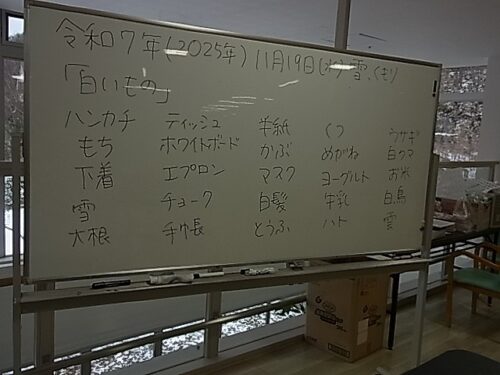 令和7年(2025年) 11月19日(水) 雪、くもり
「白いもの」
ハンカチ ティッシュ 半紙 くつ ウサギ
もち ホワイトボード かぶ めがね 白クマ
下着 エプロン マスク ヨーグルト お米
雪 チョーク 白髪 牛乳 白鳥
大根 手帳 とうふ ハト 雪